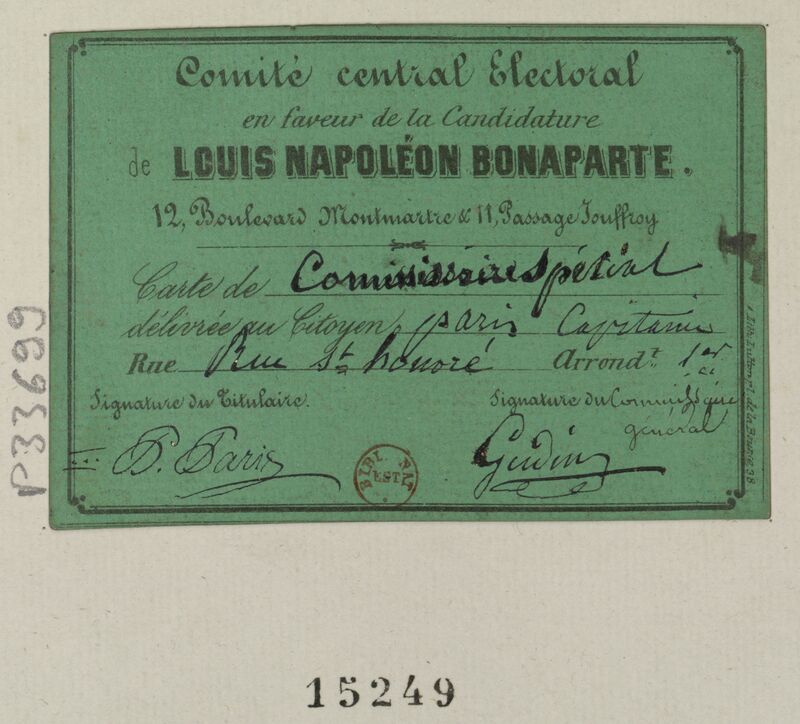 Comité central Electoral
en faveur de la Candidature
de LOUIS NAPOLÉON BONAPARTE.
12, Boulevard Montmartre & 11, Passage Jouffroy
Carte de Commissaire Spécial
délivrée au Citoyen paris Capitaine
Rue Rue St honoré Arrondt. 1er
Signature du Titulaire.
Signature du Commissaire
général
P. Paris
Gudin
BIBL. NAT.
EST.
de la Bourse 38
P33699
15249